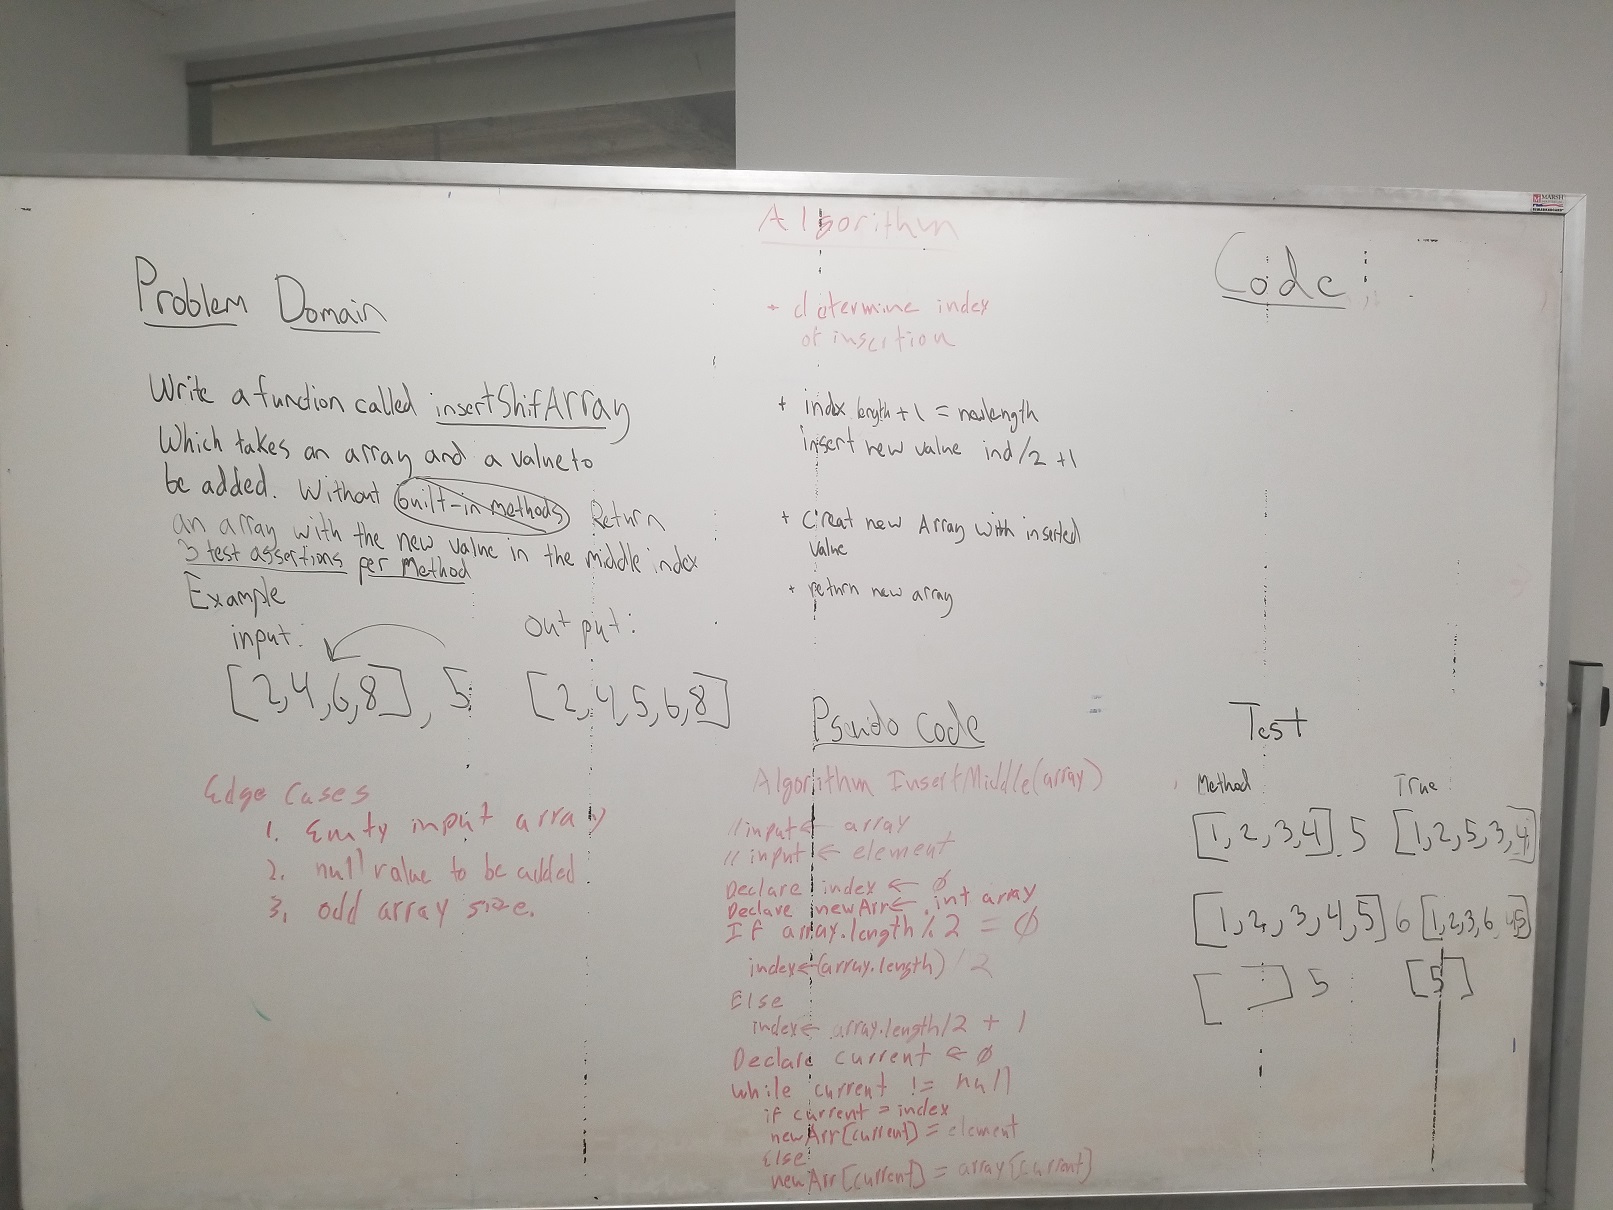 Problem Domain
Write a function called insertShifArray
Which takes an array and a value to
be added. Without built-in methods Return
an array with the new value in the middle index
3 test assertions per Method
Example
input:
output:
[2,4,6,8], 5
[2,4,5,6,8]
Edge Cases
1. Emty input array
2. null value to be added
3. odd array size.
Algorithm
+ determine index
of insertion
+ index length +1 = newlength
insert new value ind/2 +1
+ Creat new Array with inserted
value
+ return new array
Psuido Code
Algorithm InsertMiddle(array)
// input ← array
// input ← element
Declare index ← 0
Declare newArr ← int array
If array.length % 2 = 0
index ← (array.length) / 2
Else
index ← array.length/2 + 1
Declare current ← 0
While current != null
if current = index
newArr[current] = element
Else
newArr[current] = array[current]
Code:
Test
Method
True
[1,2,3,4], 5 [1,2,5,3,4]
[1,2,3,4,5] 6 [1,2,3,6,4,5]
[ ] 5 [5]
MARSH